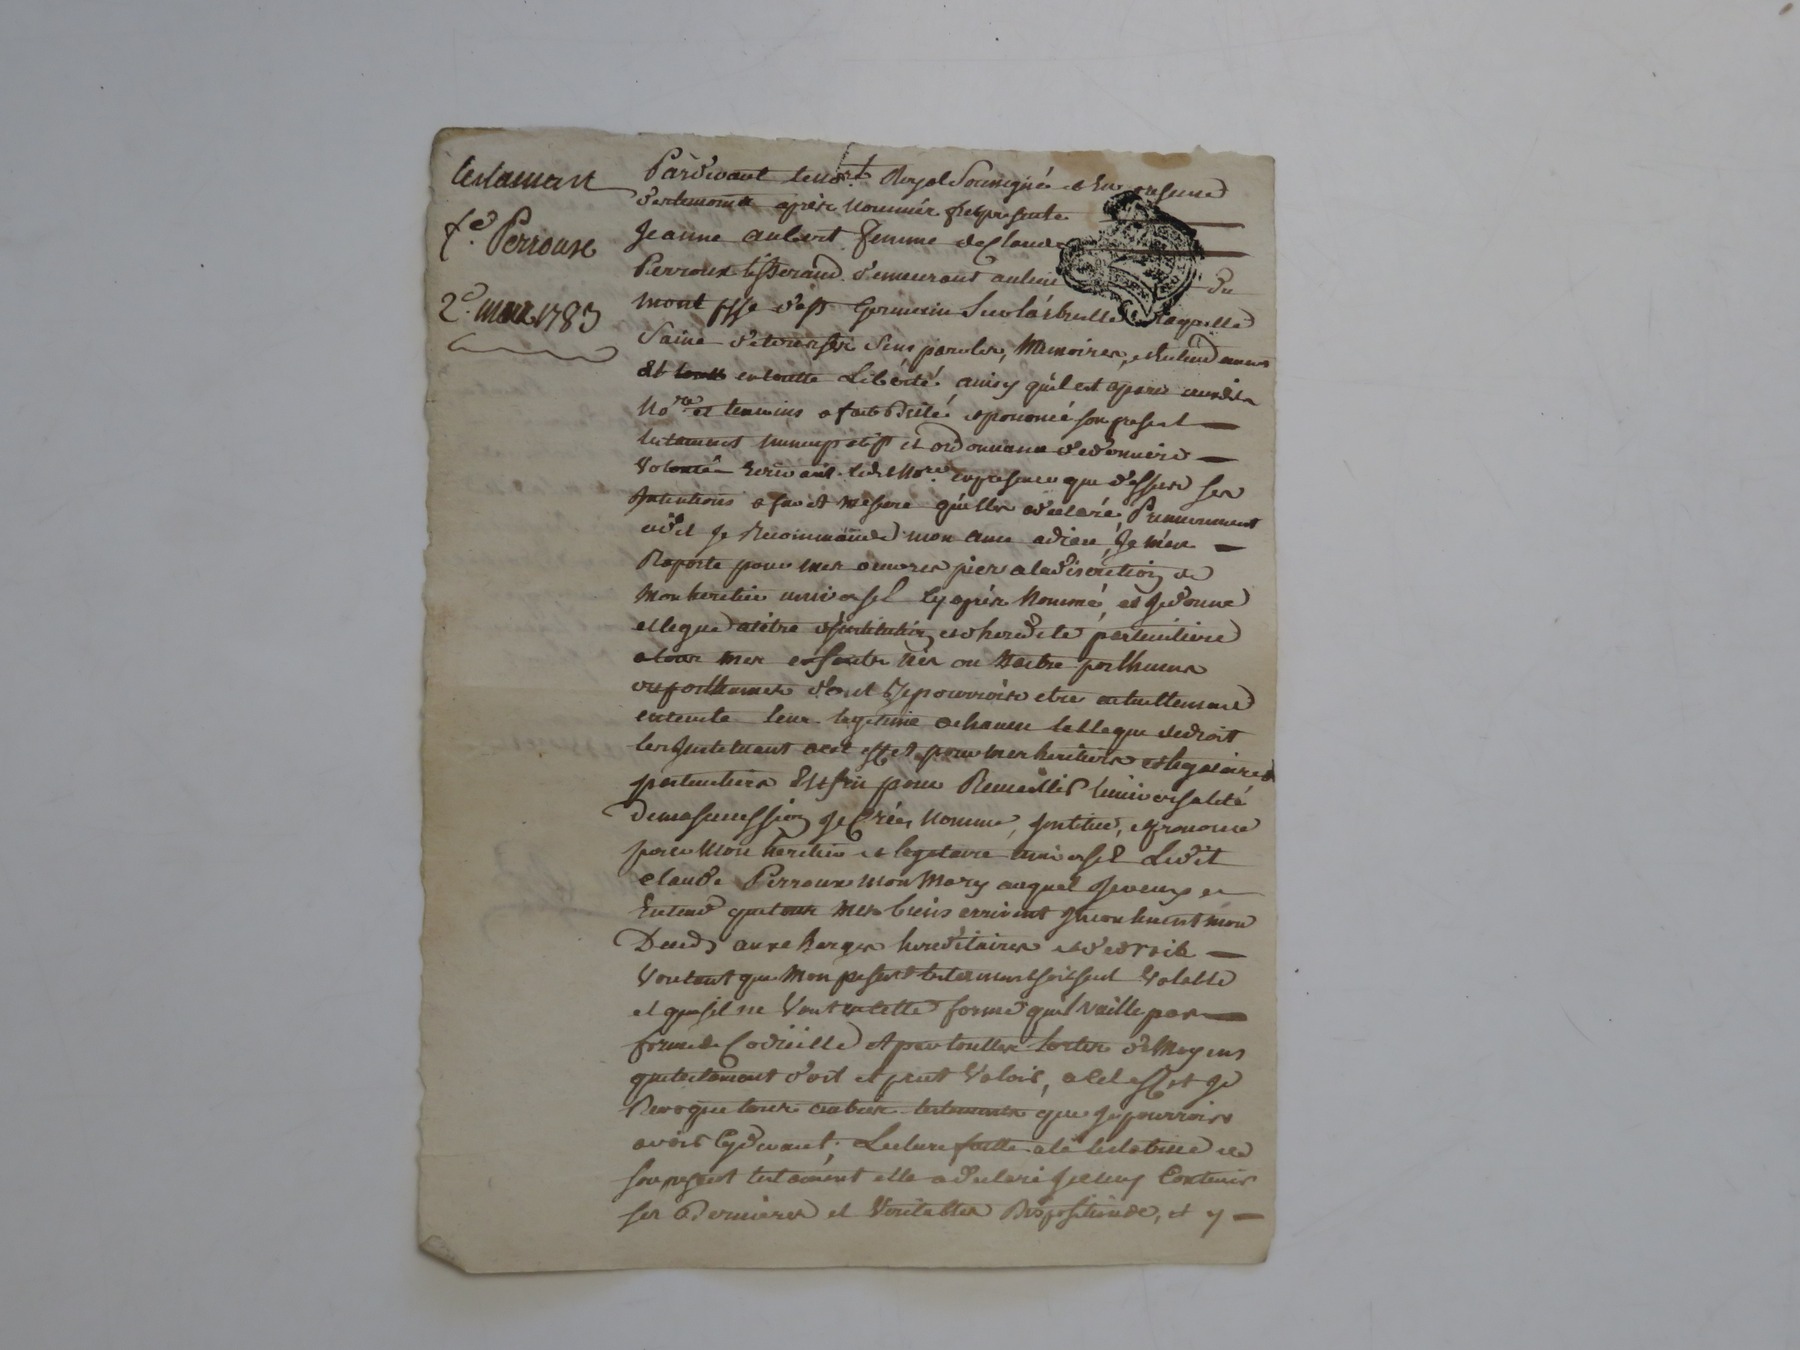 testament
fe Perroux
2e. mars 1783
Pardevant le nore. Royal Soussigné et En presence
des temoins après nommés fut presente
Jeanne aubert femme de Claude
Perroux tisserand demeurant au lieu du
mont psse de st Germain Sur l'arbresle Laquelle
Saine de tous ses Sens paroles, Memoires, et Entendement
et en toutte Liberté ainsy quil est aparu audit
Nore et temoins a fait dicté et prononcé son present
testament nuncupatif et ordonnance de derniere
Volonté Ecrivant ledit Nore. en presence que dessus ses
Intentions a fur et Mesure quelle a declaré Premierement
a dit Je Recommande mon ame a dieu, Je m'en
Raporte pour mes oeuvres pies a la discretion de
Mon heritier universel Cy après Nommé, et Je donne
et legue a titre d'institution et d'heredité particuliere
a tous mes enfants nés ou Naitre posthumes
ou posthumes dont Je pourrois etre actuellement
enceinte leur legitime a chacun telle que de droit
les Instituant a cet effet pour mes heritiers et legataires
particuliers Et fin pour Remeillir l'universalité
De ma succession Je Crée, Nomme, Institue, et prononce
pour Mon heritier et legataire universel Ledit
Claude Perroux Mon Mary auquel Je veux et
Entend que tous Mes biens arrivent Incontinent mon
Deceds aux charges hereditaires et de droit
Voulant que Mon present testament soit seul Valable
et que sil ne Vaut en cette forme quil vaille par
forme de Codicille et par touttes sortes de Moyens
que testament doit et peut Valoir, a cet effet Je
Revoque tous autres testaments que Je pourrois
avoir Cy devant, Lecture faitte a la testatrice de
son present testament elle a declaré Iceluy Contenir
ses Dernieres et Veritables Dispositions, et y